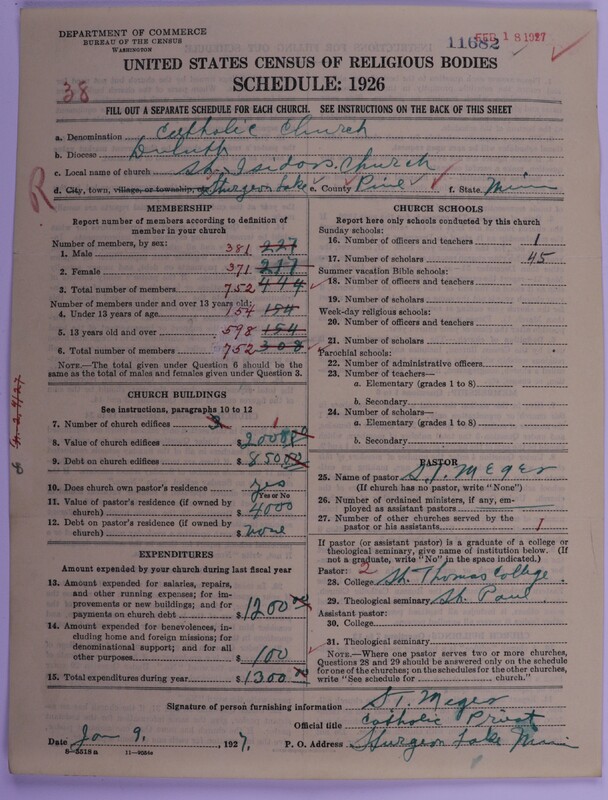 DEPARTMENT OF COMMERCE
BUREAU OF THE CENSUS
WASHINGTON
11682
FEB 18 1927
UNITED STATES CENSUS OF RELIGIOUS BODIES
SCHEDULE: 1926
38
FILL OUT A SEPARATE SCHEDULE FOR EACH CHURCH. SEE INSTRUCTIONS ON THE BACK OF THIS SHEET
a. Denomination Catholic Church
b. Diocese Duluth
c. Local name of church St. Isidors Church
d. City, town, village, or township, Sturgeon Lake e. County Pine f. State Minn
R
MEMBERSHIP
Report number of members according to definition of member in your church
Number of members, by sex:
1. Male 381 227
2. Female 371 217
3. Total number of members 752 444
Number of members under and over 13 years old:
4. Under 13 years of age 154 154
5. 13 years old and over 598 154
6. Total number of members 752 308
NOTE.—The total given under Question 6 should be the same as the total of males and females given under Question 3.
CHURCH BUILDINGS
See instructions, paragraphs 10 to 12
7. Number of church edifices 3 1
8. Value of church edifices $
9. Debt on church edifices $ 8500
10. Does church own pastor's residence? yes
Yes or No
11. Value of pastor's residence (if owned by church) $ 4000
12. Debt on pastor's residence (if owned by church) $ none
EXPENDITURES
Amount expended by your church during last fiscal year
13. Amount expended for salaries, repairs, and other running expenses; for improvements or new buildings; and for payments on church debt $ 1200
14. Amount expended for benevolences, including home and foreign missions; for denominational support; and for all other purposes $ 100
15. Total expenditures during year $ 1300
CHURCH SCHOOLS
Report here only schools conducted by this church
Sunday schools:
16. Number of officers and teachers 1
17. Number of scholars 45
Summer vacation Bible schools:
18. Number of officers and teachers
19. Number of scholars
Week-day religious schools:
20. Number of officers and teachers
21. Number of scholars
Parochial schools:
22. Number of administrative officers
23. Number of teachers—
a. Elementary (grades 1 to 8)
b. Secondary
24. Number of scholars—
a. Elementary (grades 1 to 8)
b. Secondary
PASTOR
25. Name of pastor S. J. Meger
(If church has no pastor, write "None")
26. Number of ordained ministers, if any, employed as assistant pastors
27. Number of other churches served by the pastor or his assistants 1
If pastor (or assistant pastor) is a graduate of a college or theological seminary, give name of institution below. (If not a graduate, write "No" in the space indicated.)
Pastor: 2
28. College St. Thomas College
29. Theological seminary St. Paul
Assistant pastor:
30. College
31. Theological seminary
NOTE.—Where one pastor serves two or more churches, Questions 28 and 29 should be answered only on the schedule for one of the churches; on the schedules for the other churches, write "See schedule for church."
Signature of person furnishing information S. J. Meger
Official title Catholic Priest
Date Jan 9, 1927. P. O. Address Sturgeon Lake Minn
8-5518 a